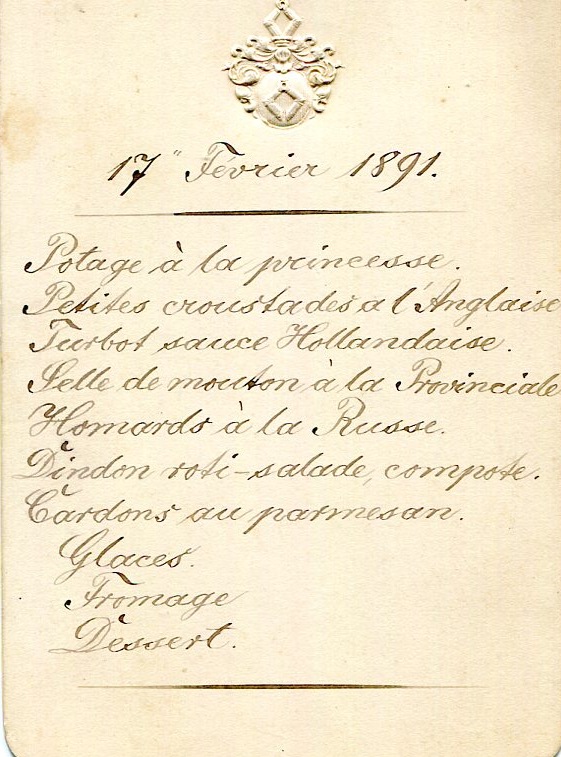 17" Février 1891.
Potage à la princesse.
Petites croustades a l'Anglaise
Turbot sauce Hollandaise.
Selle de mouton à la Provinciale
Homards à la Russe.
Dindon roti-salade, compote.
Cardons au parmesan.
Glaces.
Fromage
Dessert.